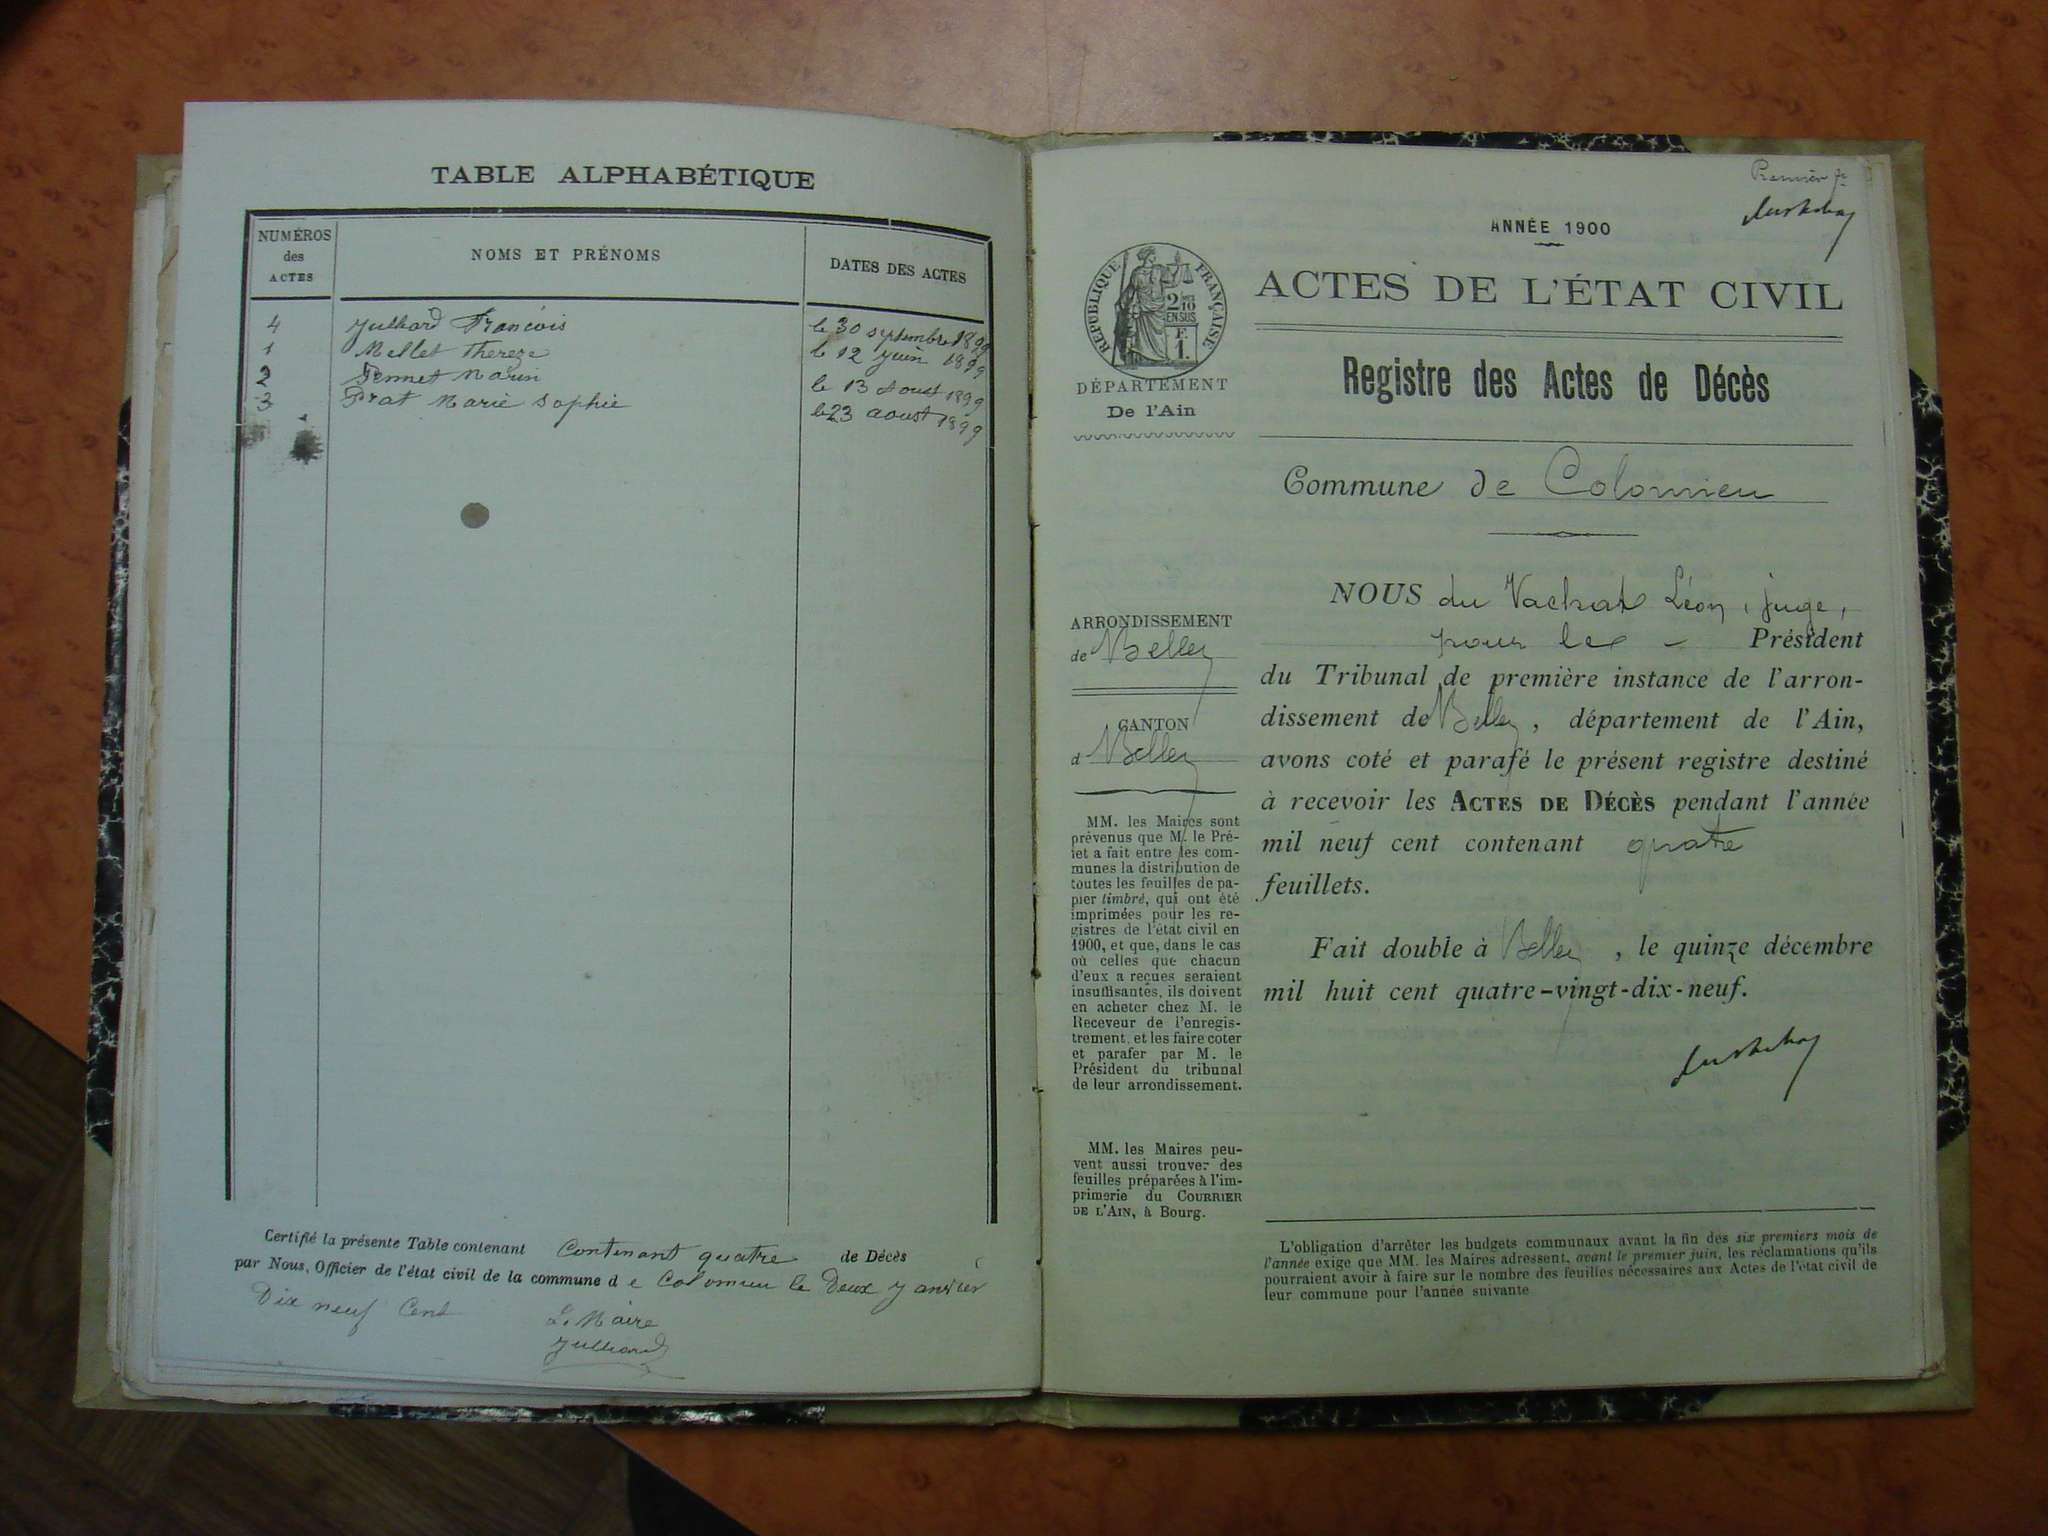 TABLE ALPHABÉTIQUE
NUMÉROS des ACTES
NOMS ET PRÉNOMS
DATES DES ACTES
4 Julliard François le 30 septembre 1899
1 Mellet Thereze le 12 juin 1899
2 Pennet Marin le 13 Aoust 1899
3 Prat Marie Sophie le 23 aoust 1899
Certifié la présente Table contenant Contenant quatre de Décès
par Nous, Officier de l'état civil de la commune d e Colomieu le Deux Janvier
Dix neuf Cent
Le Maire
Julliard
Premier
ANNÉE 1900
RÉPUBLIQUE FRANÇAISE
2/10 EN SUS
F. 1.
ACTES DE L'ÉTAT CIVIL
DÉPARTEMENT
De l'Ain
Registre des Actes de Décès
Commune de Colomieu
ARRONDISSEMENT
de Belley
CANTON
d Belley
MM. les Maires sont
prévenus que M. le Pré-
fet a fait entre les com-
munes la distribution de
toutes les feuilles de pa-
pier timbré, qui ont été
imprimées pour les re-
gistres de l'état civil en
1900, et que, dans le cas
où celles que chacun
d'eux a reçues seraient
insuffisantes, ils doivent
en acheter chez M. le
Receveur de l'enregis-
trement, et les faire coter
et parafer par M. le
Président du tribunal
de leur arrondissement.
MM. les Maires peu-
vent aussi trouver des
feuilles préparées à l'im-
primerie du COURRIER
DE L'AIN, à Bourg.
NOUS du Vachat Léon, juge,
pour le Président
du Tribunal de première instance de l'arron-
dissement de Belley, département de l'Ain,
avons coté et parafé le présent registre destiné
à recevoir les ACTES DE DÉCÈS pendant l'année
mil neuf cent contenant quatre
feuillets.
Fait double à Belley, le quinze décembre
mil huit cent quatre-vingt-dix-neuf.
L'obligation d'arrêter les budgets communaux avant la fin des six premiers mois de
l'année exige que MM. les Maires adressent, avant le premier juin, les réclamations qu'ils
pourraient avoir à faire sur le nombre des feuilles nécessaires aux Actes de l'état civil de
leur commune pour l'année suivante